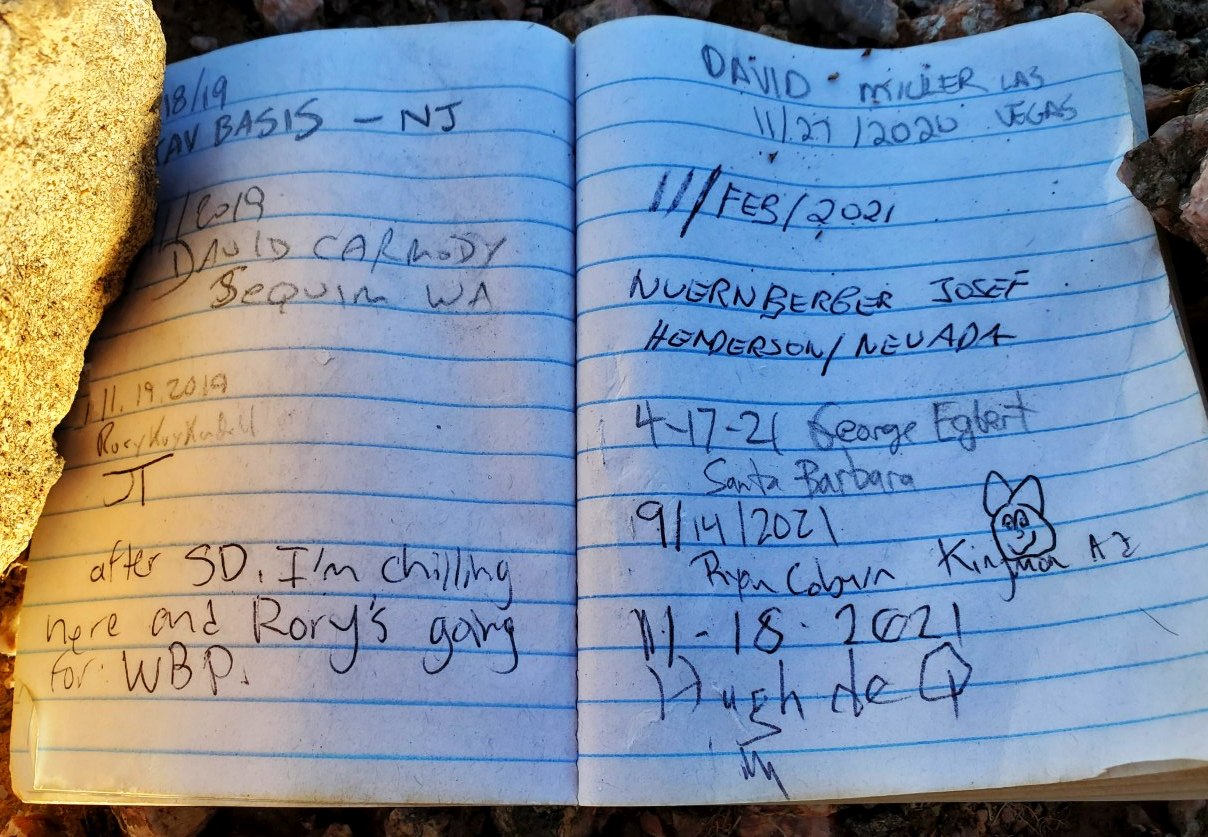 18/19
TAV BASIS - NJ
1/2019
DAVID CARMODY
SEQUIM WA
11.19.2019
Rory Kuykendall
JT
after SD. I'm chilling
here and Rory's going
for WBP.
DAVID MILLER LAS
11/27/2020 VEGAS
111/FEB/2021
NUERNBERBER JOSEF
HENDERSON/NEVADA
4-17-21 George Egbert
Santa Barbara
9/14/2021
Ryan Coburn Kingman AZ
11-18-2021
Hugh de Q